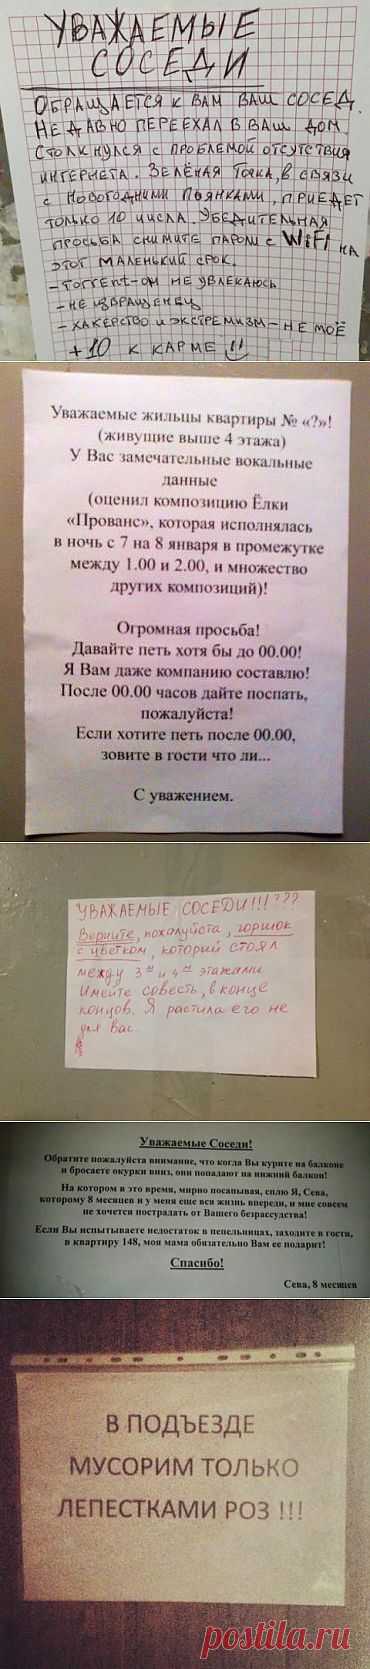 УВАЖАЕМЫЕ
СОСЕДИ
ОБРАЩАЕТСЯ К ВАМ ВАШ СОСЕД.
НЕДАВНО ПЕРЕЕХАЛ В ВАШ ДОМ
СТОЛКНУЛСЯ С ПРОБЛЕМОЙ ОТСУТСТВИЯ
ИНТЕРНЕТА. ЗЕЛЁНАЯ ТОЧКА, В СВЯЗИ
С НОВОГОДНИМИ ПЬЯНКАМИ, ПРИЕДЕТ
ТОЛЬКО 10 ЧИСЛА. УБЕДИТЕЛЬНАЯ
ПРОСЬБА СНИМИТЕ ПАРОЛЬ С WiFi НА
ЭТОТ МАЛЕНЬКИЙ СРОК.
- TORRENT-ОМ НЕ УВЛЕКАЮСЬ
- НЕ ИЗВРАЩЕНЕЦ
- ХАКЕРСТВО И ЭКСТРЕМИЗМ - НЕ МОЁ
+10 К КАРМЕ!
Уважаемые жильцы квартиры № «?»!
(живущие выше 4 этажа)
У Вас замечательные вокальные
данные
(оценил композицию Ёлки
«Прованс», которая исполнялась
в ночь с 7 на 8 января в промежутке
между 1.00 и 2.00, и множество
других композиций)!
Огромная просьба!
Давайте петь хотя бы до 00.00!
Я Вам даже компанию составлю!
После 00.00 часов дайте поспать,
пожалуйста!
Если хотите петь после 00.00,
зовите в гости что ли...
С уважением.
УВАЖАЕМЫЕ СОСЕДИ!!!???
Верните, пожалуйста, горшок
с цветком, который стоял
между 3м и 4м этажами
Имейте совесть, в конце
концов. Я растила его не
для вас.
Уважаемые Соседи!
Обратите пожалуйста внимание, что когда Вы курите на балконе
и бросаете окурки вниз, они попадают на нижний балкон!
На котором в это время, мирно посапывая, сплю Я, Сева,
которому 8 месяцев и у меня еще вся жизнь впереди, и мне совсем
не хочется пострадать от Вашего безрассудства!
Если Вы испытываете недостаток в пепельницах, заходите в гости,
в квартиру 148, моя мама обязательно Вам ее подарит!
Спасибо!
Сева, 8 месяцев
В ПОДЪЕЗДЕ
МУСОРИМ ТОЛЬКО
ЛЕПЕСТКАМИ РОЗ !!!
postila.ru